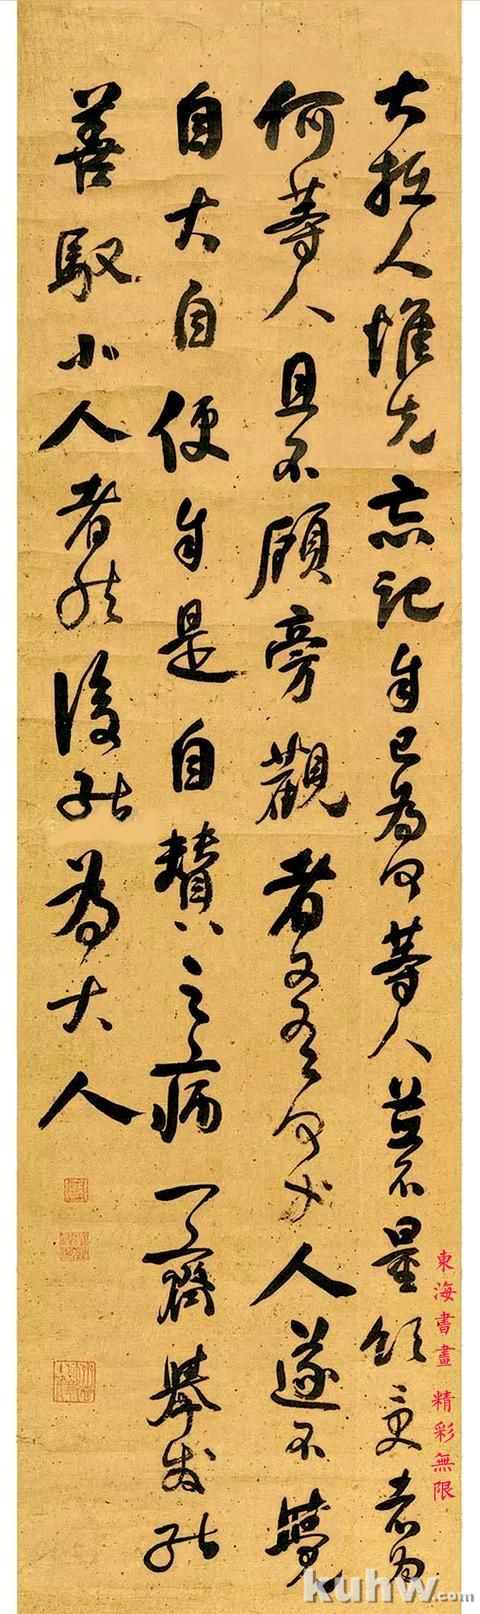 大抵人惟先忘記自己為何等人並不量領受者為
何等人且不顧旁觀者又何等人遂不覺
自大自便自是自贊之病一齊舉發能
善馭小人者然後能為大人
東海書畫 精彩無限
kuhw.com